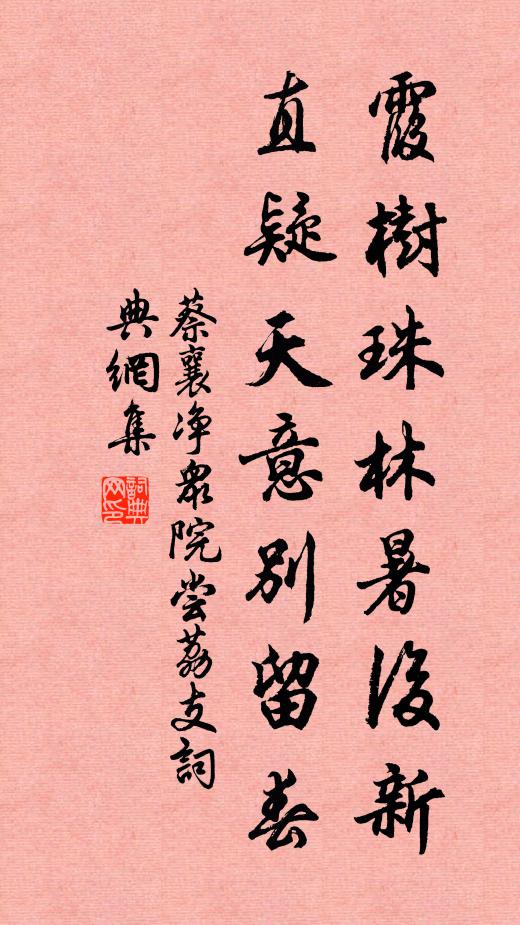 霞樹珠林暑後新
直疑天意別留春
蔡襄净衆院尝荔支詞
典網集
詞典网印